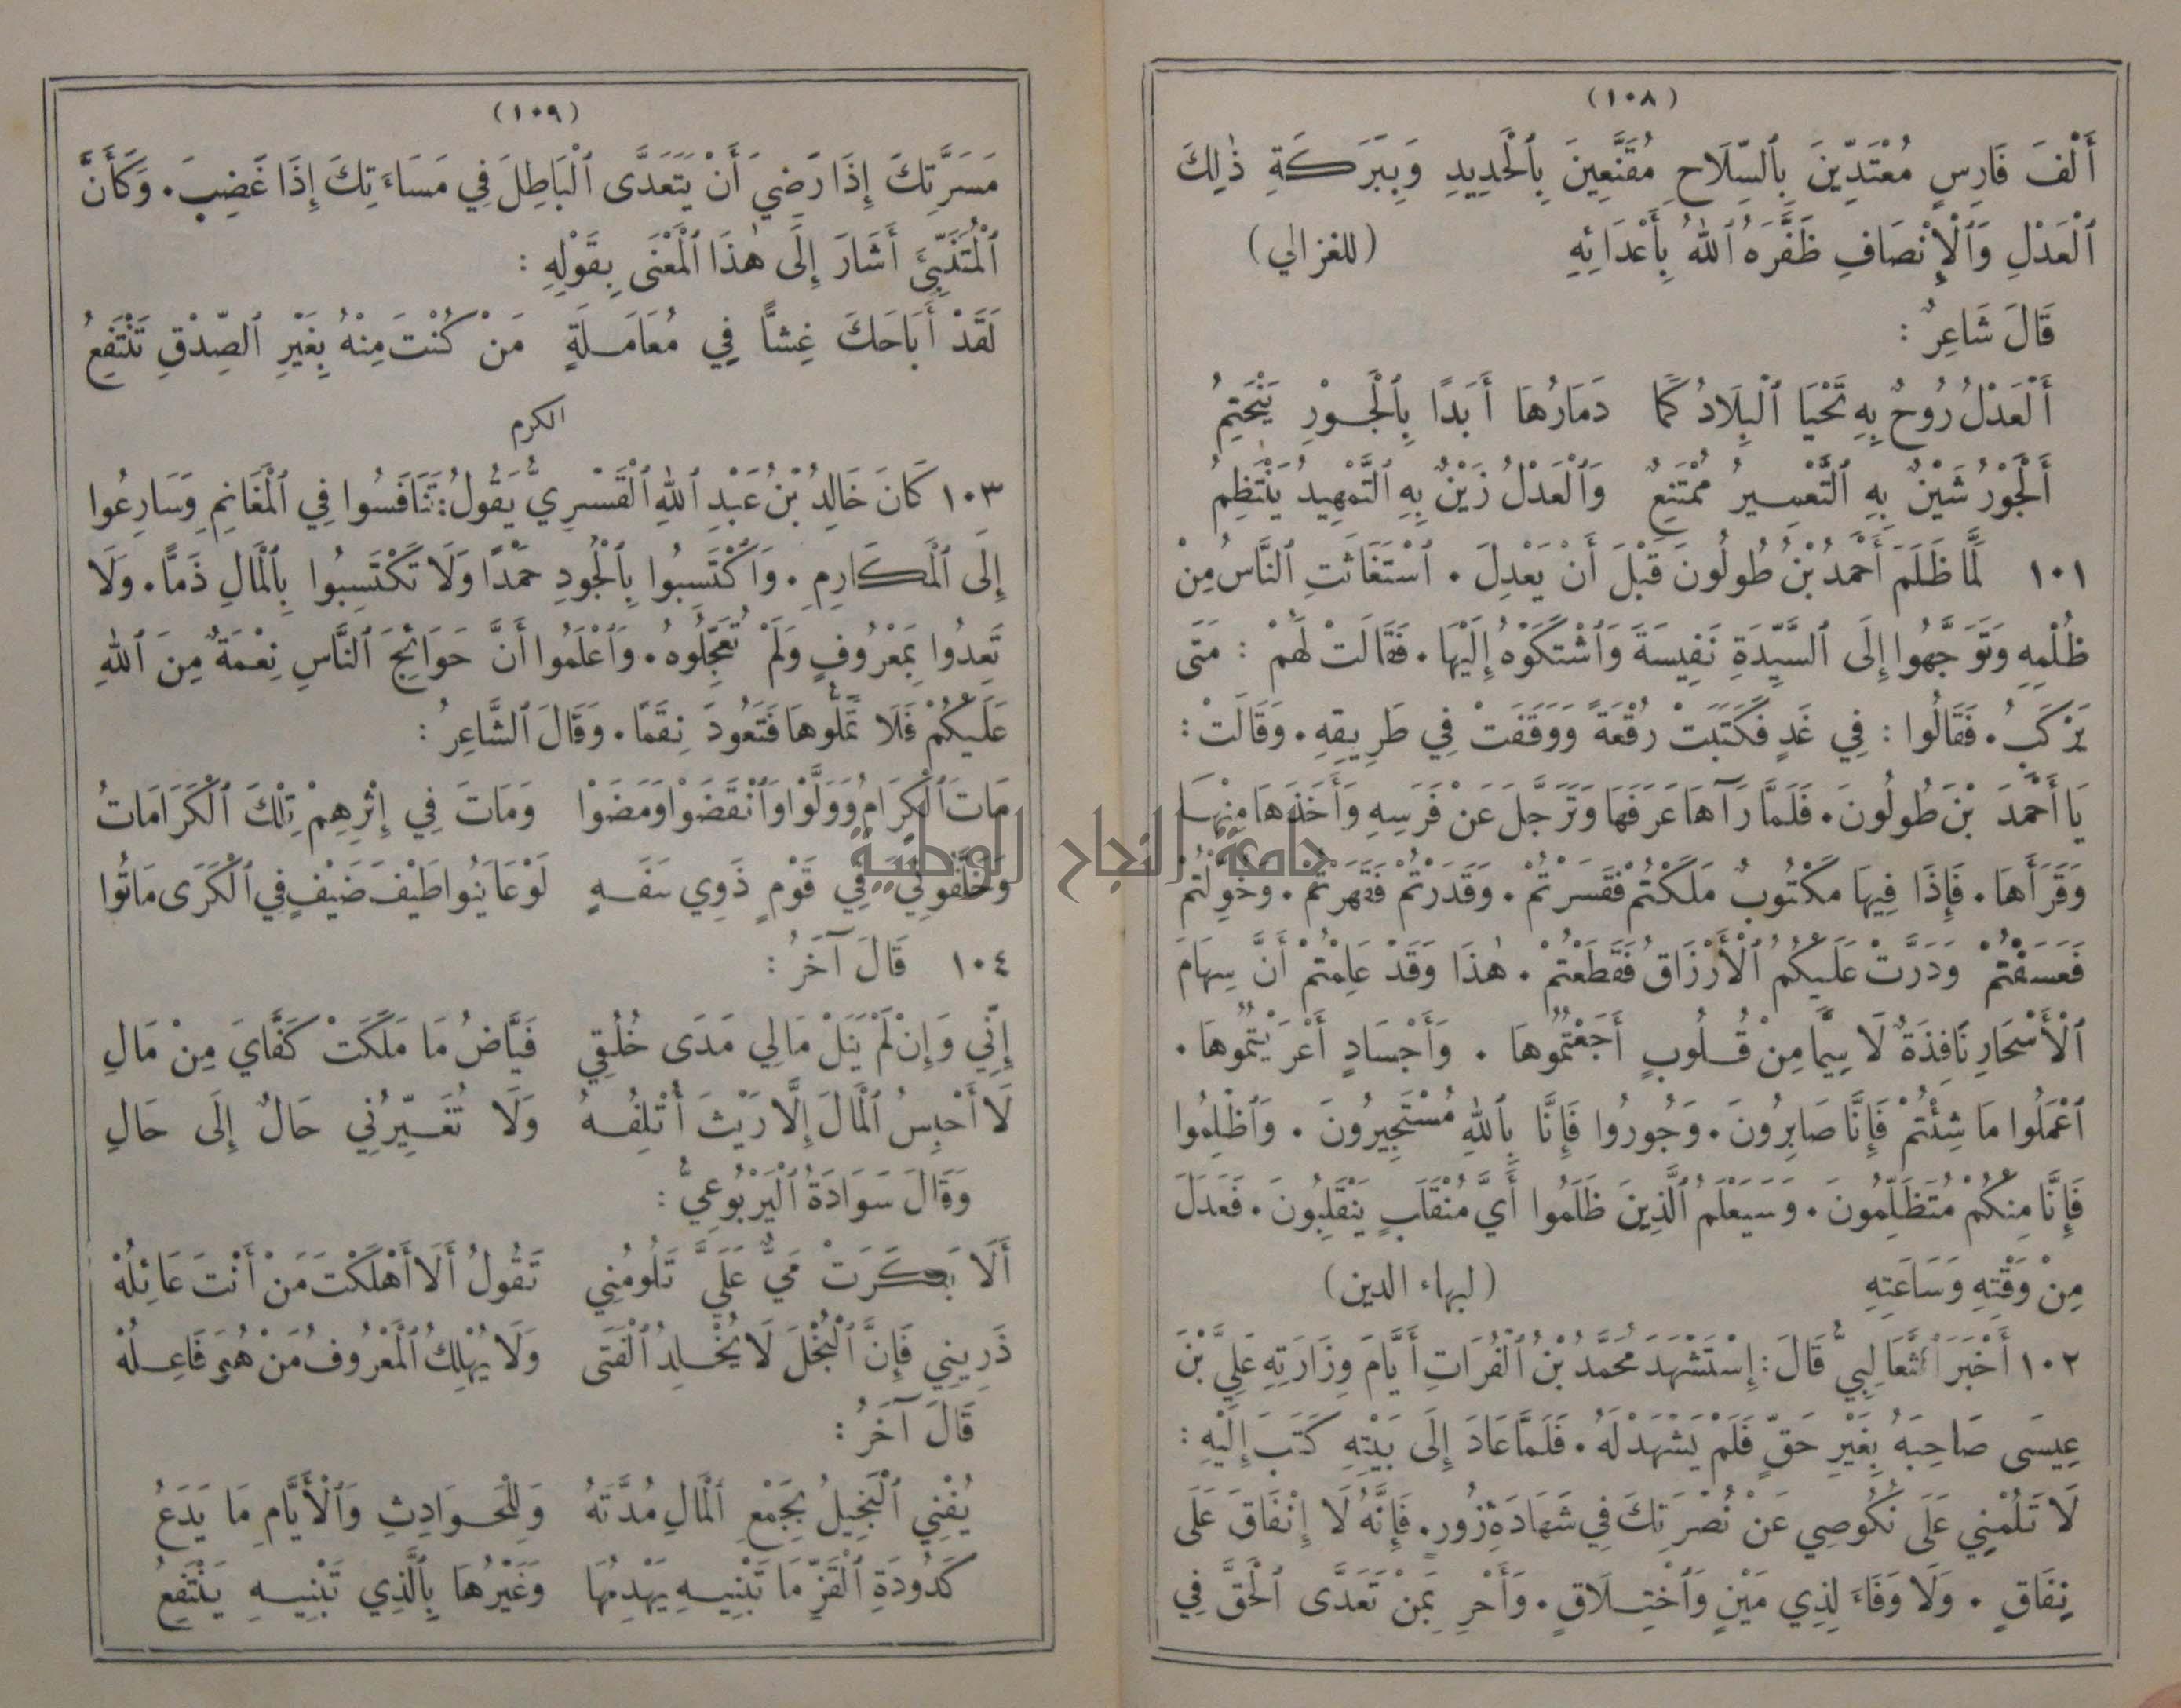 (١٠٨)
أَلْفَ فَارِسٍ مُعْتَدِّينَ بِٱلسِّلَاحِ مُقَنَّعِينَ بِٱلْحَدِيدِ وَبِبَرَكَةِ ذٰلِكَ
ٱلْعَدْلِ وَٱلْإِنْصَافِ ظَفَّرَهُ ٱللهُ بِأَعْدَائِهِ (للغزالي)
قَالَ شَاعِرٌ :
أَلْعَدْلُ رُوحٌ بِهِ تَحْيَا ٱلْبِلَادُ كَمَا دَمَارُهَا أَبَدًا بِٱلْجَوْرِ يَنْحَتِمُ
أَلْجَوْرُ شَيْنٌ بِهِ ٱلتَّعْمِيرُ مُمْتَنِعٌ وَٱلْعَدْلُ زَيْنٌ بِهِ ٱلتَّمْهِيدُ يَنْتَظِمُ
١٠١ لَمَّا ظَلَمَ أَحْمَدُ بْنُ طُولُونَ قَبْلَ أَنْ يَعْدِلَ . ٱسْتَغَاثَتِ ٱلنَّاسُ مِنْ
ظُلْمِهِ وَتَوَجَّهُوا إِلَى ٱلسَّيِّدَةِ نَفِيسَةَ وَٱشْتَكَوْهُ إِلَيْهَا . فَقَالَتْ لَهُمْ : مَتَى
يَرْكَبُ . فَقَالُوا : فِي غَدٍ فَكَتَبَتْ رُقْعَةً وَوَقَفَتْ فِي طَرِيقِهِ . وَقَالَتْ :
يَا أَحْمَدَ بْنَ طُولُونَ . فَلَمَّا رَآهَا عَرَفَهَا وَتَرَجَّلَ عَنْ فَرَسِهِ وَأَخَذَهَا مِنْهَا
وَقَرَأَهَا . فَإِذَا فِيهَا مَكْتُوبٌ مَلَكْتُمْ فَقَسَرْتُمْ . وَقَدَرْتُمْ فَقَهَرْتُمْ . وَخُوِّلْتُمْ
فَعَسَفْتُمْ وَدَرَّتْ عَلَيْكُمُ ٱلْأَرْزَاقُ فَقَطَعْتُمْ . هٰذَا وَقَدْ عَلِمْتُمْ أَنَّ سِهَامَ
ٱلْأَسْحَارِ نَافِذَةٌ لَا سِيَّمَا مِنْ قُلُوبٍ أَجَعْتُمُوهَا . وَأَجْسَادٍ أَعْرَيْتُمُوهَا .
ٱعْمَلُوا مَا شِئْتُمْ فَإِنَّا صَابِرُونَ . وَجُورُوا فَإِنَّا بِٱللهِ مُسْتَجِيرُونَ . وَٱظْلِمُوا
فَإِنَّا مِنْكُمْ مُتَظَلِّمُونَ . وَسَيَعْلَمُ ٱلَّذِينَ ظَلَمُوا أَيَّ مُنْقَلَبٍ يَنْقَلِبُونَ . فَعَدَلَ
مِنْ وَقْتِهِ وَسَاعَتِهِ (لبهاء الدين)
١٠٢ أَخْبَرَ ٱلثَّعَالِبِيُّ قَالَ : إِسْتَشْهَدَ مُحَمَّدُ بْنُ ٱلْفُرَاتِ أَيَّامَ وِزَارَتِهِ عَلِيَّ بْنَ
عِيسَى صَاحِبَهُ بِغَيْرِ حَقٍّ فَلَمْ يَشْهَدْ لَهُ . فَلَمَّا عَادَ إِلَى بَيْتِهِ كَتَبَ إِلَيْهِ :
لَا تَلُمْنِي عَلَى نُكُوصِي عَنْ نُصْرَتِكَ فِي شَهَادَةِ زُورٍ . فَإِنَّهُ لَا إِتْفَاقَ عَلَى
نِفَاقٍ . وَلَا وَفَاءَ لِذِي مَيْنٍ وَٱخْتِلَاقٍ . وَأَحْرِ بِمَنْ تَعَدَّى ٱلْحَقَّ فِي
(١٠٩)
مَسَرَّتِكَ إِذَا رَضِيَ أَنْ يَتَعَدَّى ٱلْبَاطِلَ فِي مَسَاءَتِكَ إِذَا غَضِبَ . وَكَأَنَّ
ٱلْمُتَنَبِّيَ أَشَارَ إِلَى هٰذَا ٱلْمَعْنَى بِقَوْلِهِ :
لَقَدْ أَبَاحَكَ غِشًّا فِي مُعَامَلَةٍ مَنْ كُنْتَ مِنْهُ بِغَيْرِ ٱلصِّدْقِ تَنْتَفِعُ
الكرم
١٠٣ كَانَ خَالِدُ بْنُ عَبْدِ ٱللهِ ٱلْقَسْرِيُّ يَقُولُ : تَنَافَسُوا فِي ٱلْمَغَانِمِ وَسَارِعُوا
إِلَى ٱلْمَكَارِمِ . وَٱكْتَسِبُوا بِٱلْجُودِ حَمْدًا وَلَا تَكْتَسِبُوا بِٱلْمَالِ ذَمًّا . وَلَا
تَعِدُوا بِمَعْرُوفٍ وَلَمْ تُعَجِّلُوهُ . وَٱعْلَمُوا أَنَّ حَوَائِجَ ٱلنَّاسِ نِعْمَةٌ مِنَ ٱللهِ
عَلَيْكُمْ فَلَا تَمَلُّوهَا فَتَعُودَ نِقَمًا . وَقَالَ ٱلشَّاعِرُ :
مَاتَ ٱلْكِرَامُ وَوَلَّوْا وَٱنْقَضَوْا وَمَضَوْا وَمَاتَ فِي إِثْرِهِمْ تِلْكَ ٱلْكَرَامَاتُ
وَخَلَّفُونِي فِي قَوْمٍ ذَوِي سَفَهٍ لَوْ عَايَنُوا طَيْفَ ضَيْفٍ فِي ٱلْكَرَى مَاتُوا
جامعة النجاح الوطنية
١٠٤ قَالَ آخَرُ :
إِنِّي وَإِنْ لَمْ يَنَلْ مَالِي مَدَى خُلُقِي فَيَّاضُ مَا مَلَكَتْ كَفَّايَ مِنْ مَالِ
لَا أَحْبِسُ ٱلْمَالَ إِلَّا رَيْثَ أُتْلِفُهُ وَلَا تُغَيِّرُنِي حَالٌ إِلَى حَالِ
وَقَالَ سَوَادَةُ ٱلْيَرْبُوعِيُّ :
أَلَا بَكَرَتْ مَيٌّ عَلَيَّ تَلُومُنِي تَقُولُ أَلَا أَهْلَكْتَ مَنْ أَنْتَ عَائِلُهْ
ذَرِينِي فَإِنَّ ٱلْبُخْلَ لَا يُخْلِدُ ٱلْفَتَى وَلَا يُهْلِكُ ٱلْمَعْرُوفُ مَنْ هُوَ فَاعِلُهْ
قَالَ آخَرُ :
يُفْنِي ٱلْبَخِيلُ بِجَمْعِ ٱلْمَالِ مُدَّتَهُ وَلِلْحَوَادِثِ وَٱلْأَيَّامِ مَا يَدَعُ
كَدُودَةِ ٱلْقَزِّ مَا تَبْنِيهِ يَهْدِمُهَا وَغَيْرُهَا بِٱلَّذِي تَبْنِيهِ يَنْتَفِعُ